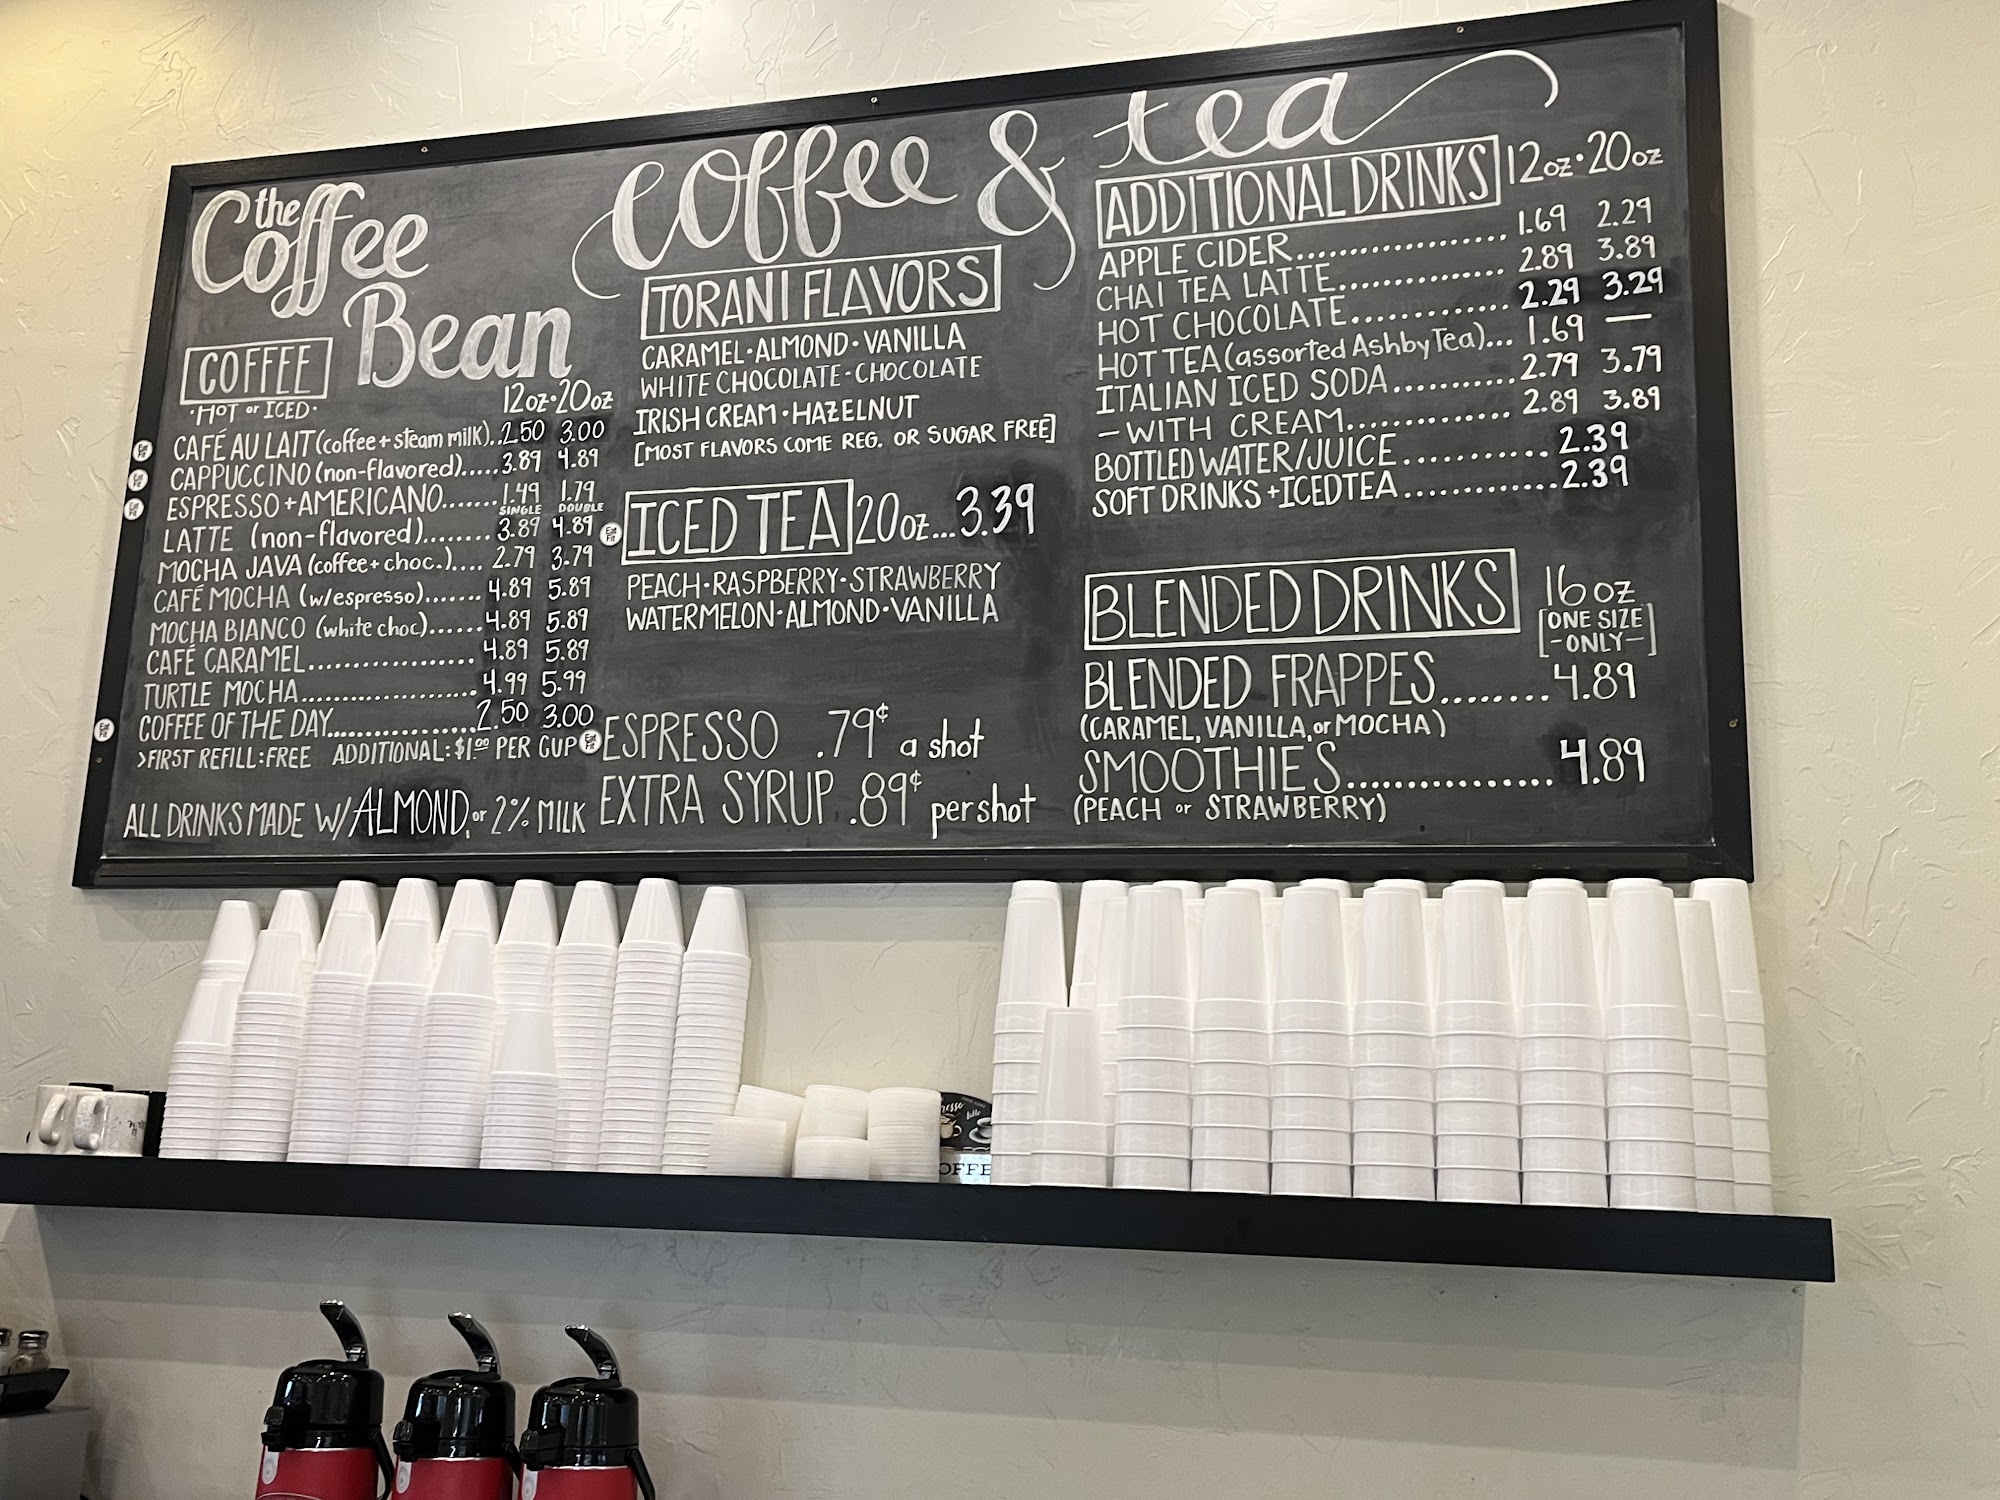 the Coffee Bean
coffee & tea
COFFEE
·HOT or ICED·
12oz·20oz
CAFÉ AU LAIT (coffee + steam milk)..2.50 3.00
CAPPUCCINO (non-flavored).....3.89 4.89
ESPRESSO + AMERICANO.......1.49 1.79
SINGLE DOUBLE
LATTE (non-flavored)........3.89 4.89
MOCHA JAVA (coffee + choc.).... 2.79 3.79
CAFÉ MOCHA (w/espresso).......4.89 5.89
MOCHA BIANCO (white choc)......4.89 5.89
CAFÉ CARAMEL...................4.89 5.89
TURTLE MOCHA....................4.99 5.99
COFFEE OF THE DAY.................2.50 3.00
>FIRST REFILL: FREE ADDITIONAL: $1.00 PER CUP
ALL DRINKS MADE W/ ALMOND, or 2% MILK
TORANI FLAVORS
CARAMEL·ALMOND·VANILLA
WHITE CHOCOLATE·CHOCOLATE
IRISH CREAM·HAZELNUT
[MOST FLAVORS COME REG. OR SUGAR FREE]
Eat Fit
ICED TEA 20oz...3.39
PEACH·RASPBERRY·STRAWBERRY
WATERMELON·ALMOND·VANILLA
Eat Fit
ESPRESSO .79¢ a shot
EXTRA SYRUP .89¢ per shot
ADDITIONAL DRINKS 12oz·20oz
APPLE CIDER..................1.69 2.29
CHAI TEA LATTE...............2.89 3.89
HOT CHOCOLATE..............2.29 3.29
HOT TEA (assorted Ashby Tea)...1.69 —
ITALIAN ICED SODA...........2.79 3.79
- WITH CREAM...............2.89 3.89
BOTTLED WATER/JUICE...........2.39
SOFT DRINKS + ICED TEA.............2.39
BLENDED DRINKS 16oz
[ONE SIZE
-ONLY-]
BLENDED FRAPPES........4.89
(CARAMEL, VANILLA, or MOCHA)
SMOOTHIE'S................4.89
(PEACH or STRAWBERRY)